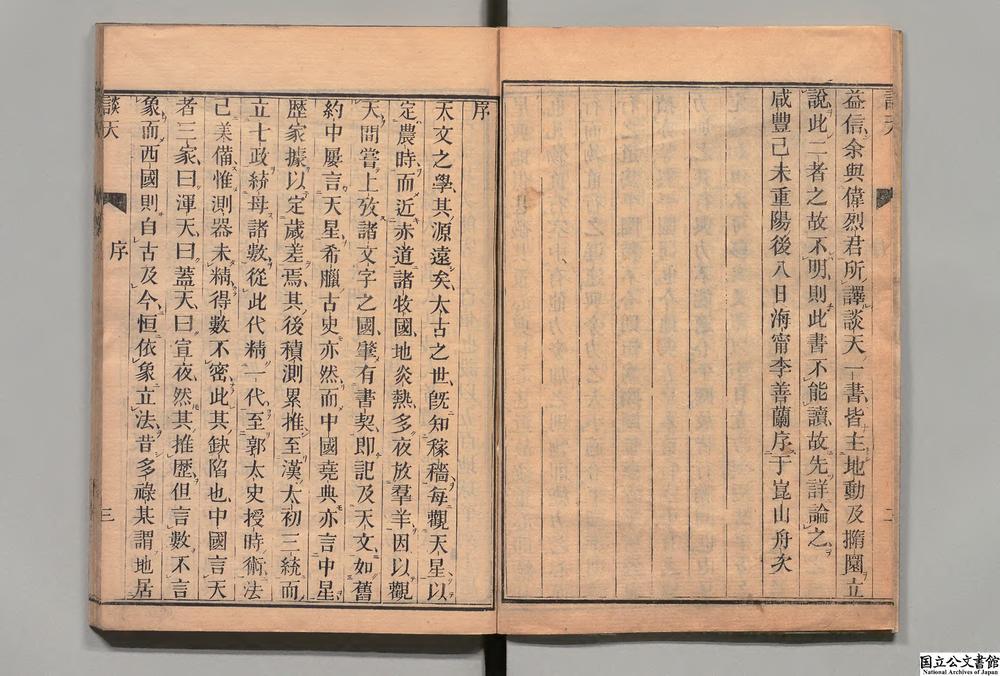 益信余與偉烈君所譯談天一書皆主地動及撱圜立
說此二者之故不明則此書不能讀故先詳論之
咸豐己未重陽後八日海甯李善蘭序于崑山舟次
二
序
天文之學其源遠矣太古之世旣知稼穡每觀天星以
定農時而近赤道諸牧國地炎熱多夜放羣羊因以觀
天間嘗上攷諸文字之國肇有書契即記及天文如舊
約中屢言天星希臘古史亦然而中國堯典亦言中星
歴家據以定歲差焉其後積測累推至漢太初三統而
立七政統母諸數從此代精一代至郭太史授時術法
已美備惟測器未精得數不密此其缺陷也中國言天
者三家曰渾天曰蓋天曰宣夜然其推歴但言數不言
象而西國則自古及今恒依象立法昔多祿某謂地居
談天
序
三
国立公文書館
National Archives of Japan